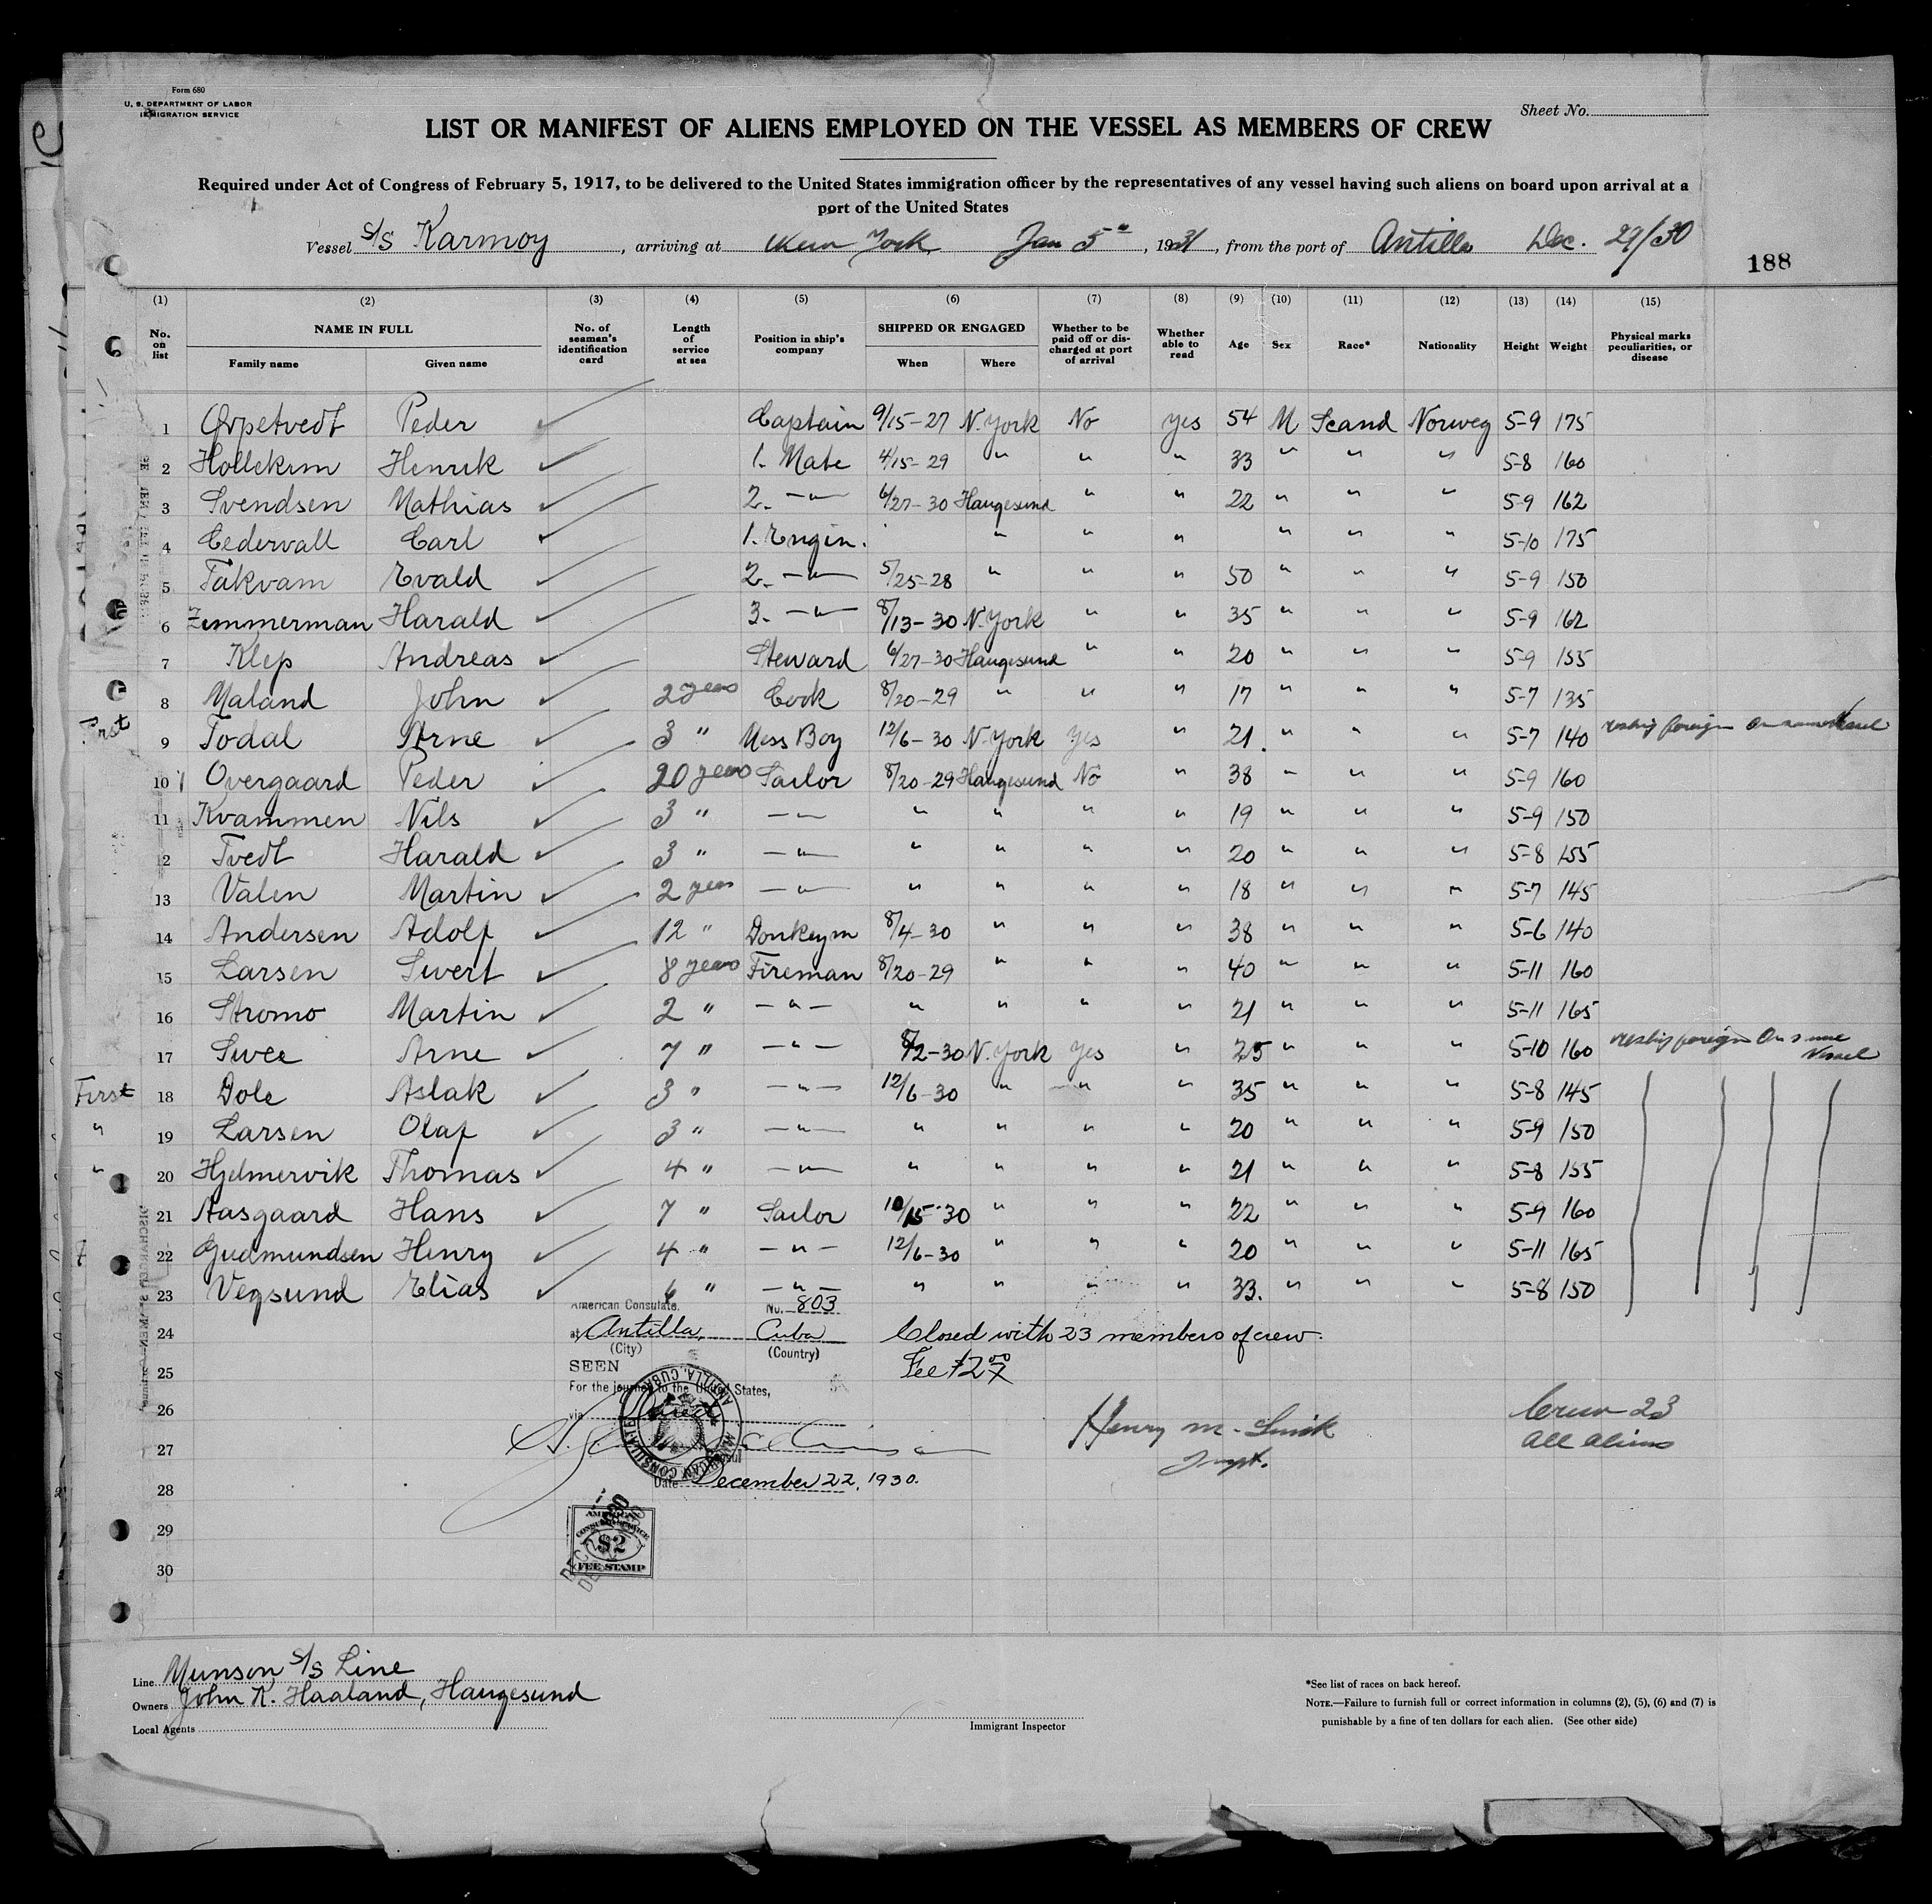 Form 680
U. S. DEPARTMENT OF LABOR
IMMIGRATION SERVICE
Sheet No.
LIST OR MANIFEST OF ALIENS EMPLOYED ON THE VESSEL AS MEMBERS OF CREW
Required under Act of Congress of February 5, 1917, to be delivered to the United States immigration officer by the representatives of any vessel having such aliens on board upon arrival at a
port of the United States
Vessel S/S Karmoy, arriving at New York Jan 5th, 1931, from the port of Antilla Dec. 29/30
188
(1) (2) (3) (4) (5) (6) (7) (8) (9) (10) (11) (12) (13) (14) (15)
No. on list NAME IN FULL Family name Given name No. of seaman's identification card Length of service at sea Position in ship's company SHIPPED OR ENGAGED When Where Whether to be paid off or discharged at port of arrival Whether able to read Age Sex Race* Nationality Height Weight Physical marks peculiarities, or disease
1 Peder Captain 9/15-27 N. York No yes 54 M Scand Norweg 5-9 175
2 Henrik 1. Mate 4/15-29 " " " 33 " " " 5-8 160
3 Svendsen Mathias 2. -"- 6/27-30 Haugesund " " 22 " " " 5-9 162
4 Cedervall Carl 1. Engin. " " " " " " 5-10 175
5 Takvam Evald 2. -"- 5/25-28 " " " 50 " " " 5-9 150
6 Zimmerman Harald 3. -"- 8/13-30 N. York " " 35 " " " 5-9 162
7 Klep Andreas Steward 6/27-30 Haugesund " " 20 " " " 5-9 155
8 Maland John 2 years Cook 8/20-29 " " " 17 " " " 5-7 135
First 9 Todal Arne 3 " Mess Boy 12/6-30 N. York Yes " 21. " " " 5-7 140 reship foreign on same Vessel
10 Overgaard Peder 20 years Sailor 8/20-29 Haugesund No " 38 " " " 5-9 160
11 Kvammen Nils 3 " -"- " " " " 19 " " " 5-9 150
12 Tvedt Harald 3 " -"- " " " " 20 " " " 5-8 155
13 Valen Martin 2 years -"- " " " " 18 " " " 5-7 145
14 Andersen Adolf 12 " Donkeym 8/4-30 " " " 38 " " " 5-6 140
15 Larsen Sivert 8 years Fireman 8/20-29 " " " 40 " " " 5-11 160
16 Stromo Martin 2 " -"- " " " " 21 " " " 5-11 165
17 Svee Arne 7 " -"- 8/2-30 N. York Yes " 25 " " " 5-10 160 reship foreign on same Vessel
First 18 Dole Aslak 3 " -"- 12/6-30 " " " 35 " " " 5-8 145
" 19 Larsen Olaf 3 " -"- " " " " 20 " " " 5-9 150
" 20 Hjelmervik Thomas 4 " -"- " " " " 21 " " " 5-8 155
21 Aasgaard Hans 7 " Sailor 10/15-30 " " " 22 " " " 5-9 160
22 Gudmundsen Henry 4 " -"- 12/6-30 " " " 20 " " " 5-11 165
23 Vegsund Elias 6 " -"- " " " " 33. " " " 5-8 150
American Consulate. No. 803
24 at Antilla, Cuba Closed with 23 members of crew.
(City) (Country)
25 SEEN Fee $2.00
For the journey to the United States,
26 via Direct Henry M. Crew 23
27 Inspt. All aliens
Date December 22, 1930.
28
29
30
AMERICAN CONSULAR SERVICE
$2
FEE STAMP
Line Munson S/S Line
Owners John K. Haaland, Haugesund
Local Agents
Immigrant Inspector
*See list of races on back hereof.
NOTE.—Failure to furnish full or correct information in columns (2), (5), (6) and (7) is
punishable by a fine of ten dollars for each alien. (See other side)